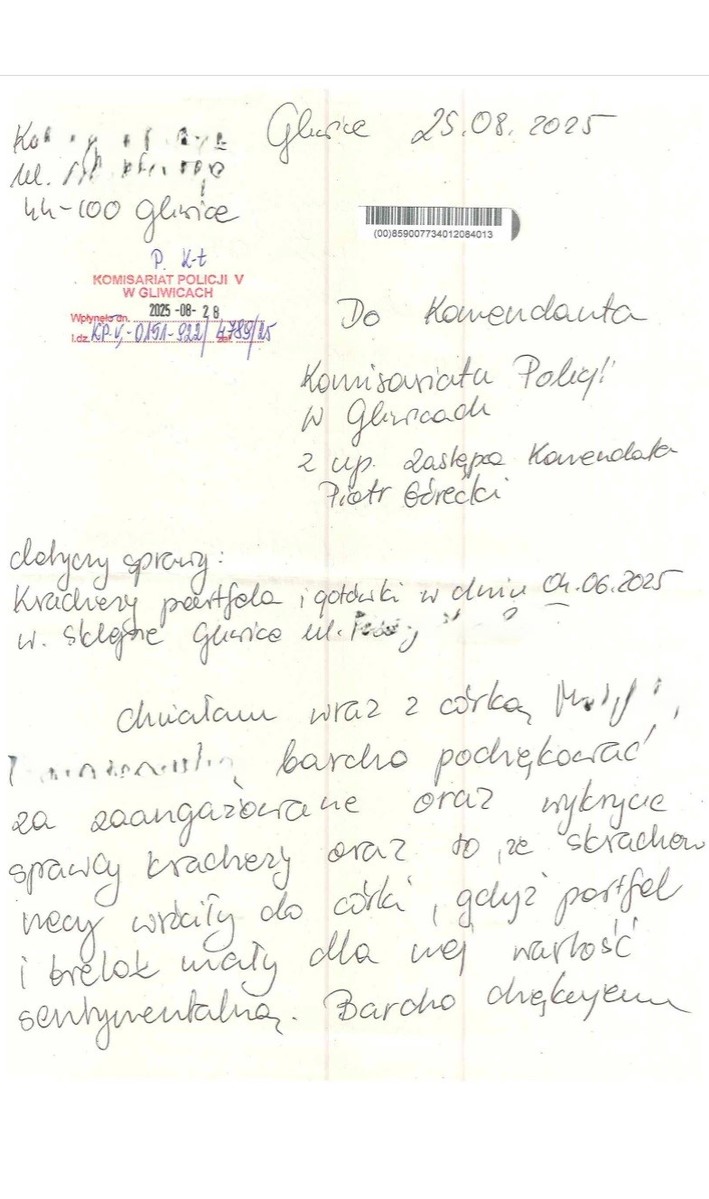 Gliwice 25.08.2025
ul.
44-100 Gliwice
(00)859007734012084013
P. K-t
KOMISARIAT POLICJI V
W GLIWICACH
Wpłynęło dn. 2025 -08- 28
l.dz. KP.V,-0151-922/4789/25
Do Komendanta
Komisariatu Policji
w Gliwicach
z up. Zastępca Komendata
Piotr Górecki
dotyczy sprawy:
Kradzezy portfela i gotówki w dniu 04.06.2025
w. Sklepie Gliwice ul.
chciałam wraz z córką
bardzo podziękować
za zaangażowanie oraz wykrycie
sprawcy kradzezy oraz to, że skradzione
rzeczy wróciły do córki, gdyż portfel
i brelok miały dla niej wartość
sentymentalną. Bardzo dziękujemy